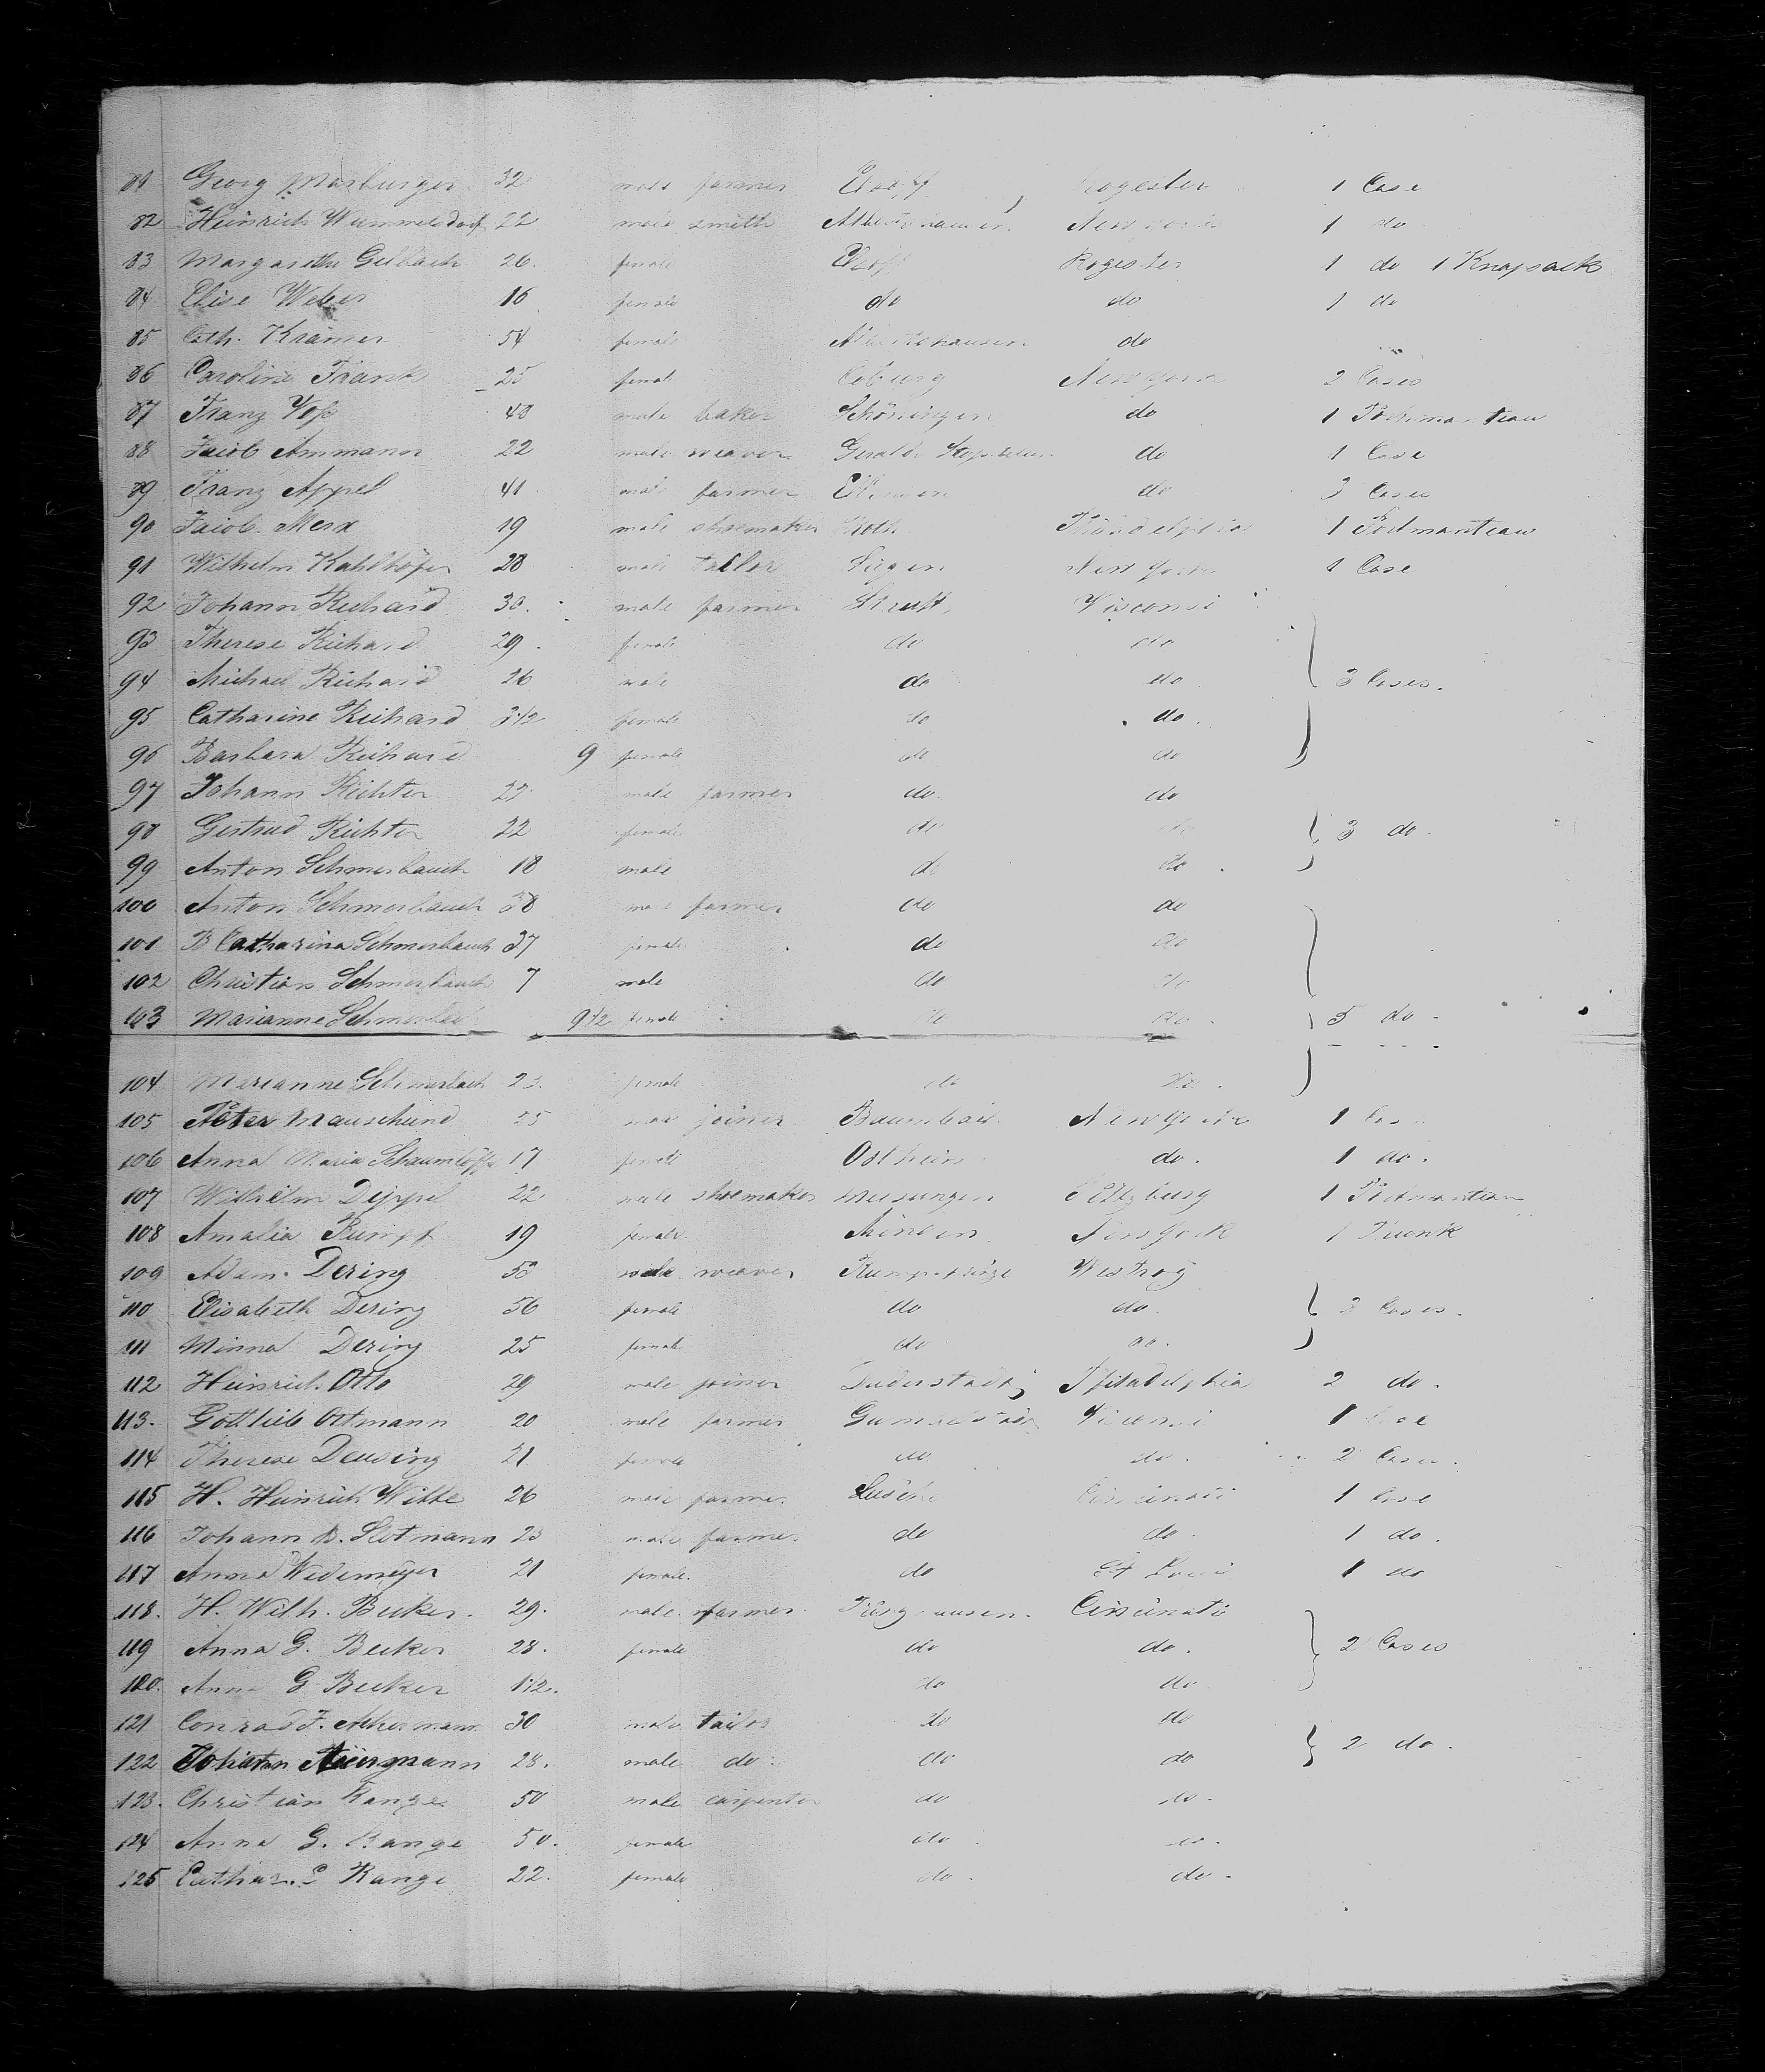 81 Georg Marburger 32 male farmer Elsoff Rogester 1 Case
82 Heinrich Wummelsdorf 22 male smith New York 1 do
83 Margarethe Gelbach 26. female Elsoff Rogester 1 do 1 Knapsack
84 Elise Weber 16 female do do 1 do
85 Cath. Krämer 54 female do
86 Caroline Frank 25 female Coburg New York 2 Cases
87 Franz Voß 48 male baker Schöningen do 1 Portmanteau
88 Jacob Ammann 22 male weaver do 1 Case
89 Franz Appel 41 male farmer do 3 Cases
90 Jacob Merx 19 male shoemaker Roth 1 Portmanteau
91 Wilhelm Kahlhöfer 28 male tailor Siegen New York 1 Case
92 Johann Richard 30. male farmer Struth Visconsi
93 Therese Richard 29. female do do
94 Michael Richard 26 male do do 3 Cases.
95 Catharine Richard 3 1/2 female do do.
96 Barbara Richard 9 female do do
97 Johann Richter 22 male farmer do do
98 Gertrud Richter 22 female do do 3 do.
99 Anton Schmerbauch 18 male do do.
100 Anton Schmerbauch 38 male farmer do do
101 B Catharina Schmerbauch 37 female do do
102 Christian Schmerbauch 7 male do do
103 Marianne Schmerbach 9 1/2 female do do. 5 do.
104 Marianne Schmerbach 23. female do do.
105 Peter Mauschund 25 male joiner Baumbach New York 1 Case
106 Anna Maria 17 female Ostheim do. 1 do.
107 Wilhelm Dippel 22 male shoemaker Melsungen 1 Portmanteau
108 Amalia Rumpf 19 female Minden New York 1 Trunk
109 Adam. Dering male weaver
110 Elisabeth Dering 56 female do do. 3 Cases.
111 Minna Dering 25 female do do.
112 Heinrich Otto 29 male joiner Duderstadt 2 do.
113. Gottlieb Ortmann 20 male farmer 1 Case
114 Therese Deusing 21 female do do. 2 Cases.
115 H. Heinrich Witte 26 male farmer 1 Case
116 Johann B. Slotmann male farmer do do. 1 do.
117 Anna Wedemeyer 21 female. do St Louis 1 do
118. H. Wilh. Becker. 29. male farmer Cincinati
119 Anna G. Becker 28. female do do. 2 Cases
120. Anna G Becker 1 1/2. do do
121 Conrad F. Akermann 30 male tailor do do
122 28. male do. do do 2 do.
123. Christian Range 50 male carpenter do do.
124 Anna G. Range 50. female do do.
125 Cathar. E Range 22. female do. do.